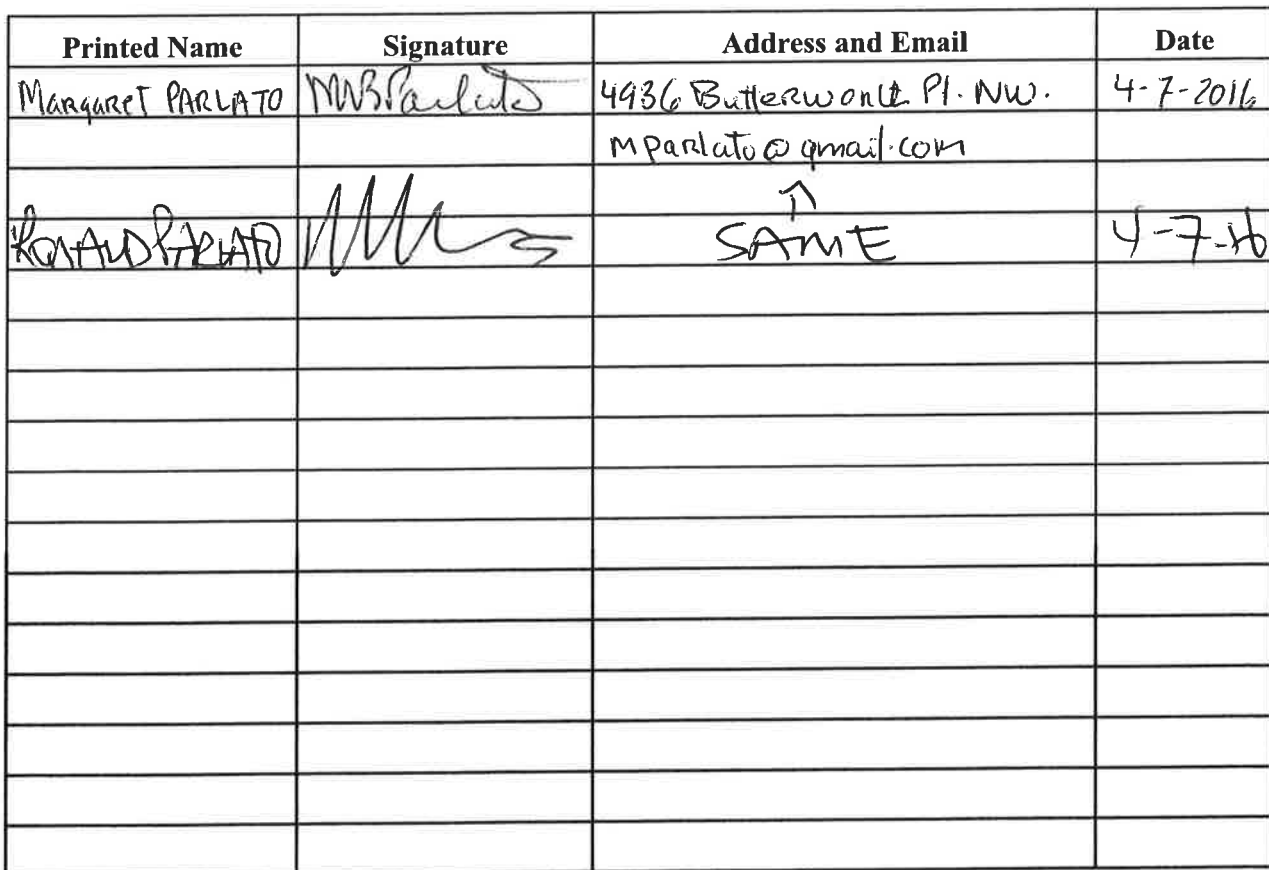 Printed Name Signature Address and Email Date
Margaret PARLATO MBParlato 4936 Butterworth Pl. NW. 4-7-2016
mparlato@gmail.com
↑
RONALD PARLATO SAME 4-7-16